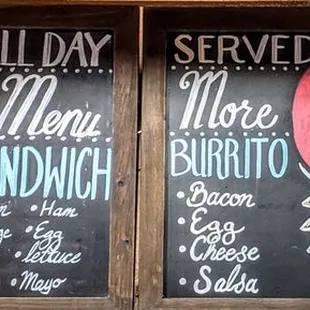 LL DAY
Menu
NDWICH
• Ham
• Egg
• lettuce
• Mayo
SERVED
More
BURRITO
• Bacon
• Egg
• Cheese
• Salsa